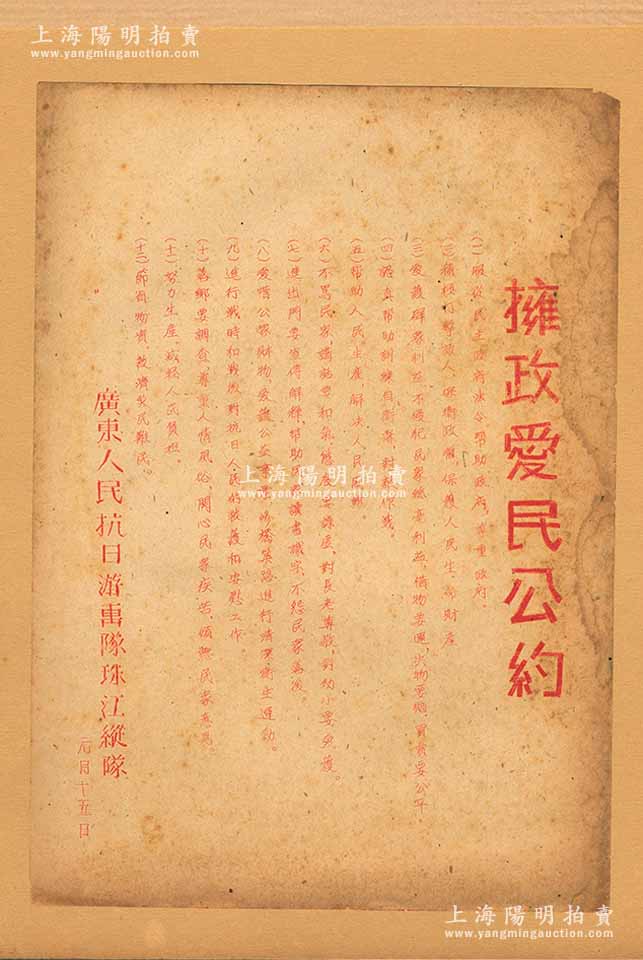 上海陽明拍賣
www.yangmingauction.com
擁政愛民公約
(一)服從民主政府法令幫助政府,尊重政府。
(二)積極打擊敵人,保衛政權,保護人民生命財產
(三)愛護群眾利益不侵犯民眾絲毫利益,借物要還,失物要賠,買賣要公平
(四)認真幫助訓練自衛隊,對敵作戰。
(五)幫助人民生產,解決人民困難
(六)不罵民眾,講話要和氣,態度要謙虛,對長老尊敬,對幼小要愛護。
(七)進出門要宣傳解釋,幫助民眾讀書識字,不怨民眾落後。
(八)愛惜公眾財物,愛護公共 修橋築路進行清潔衛生運動。
(九)進行戰時和戰後對抗日人民的救護和安慰工作。
(十)落鄉要調查,尊重人情風俗,關心民眾疾苦,傾聽民眾意見。
(十一)努力生產,減輕人民負担。
(十二)節省物資,救濟災民難民。
廣東人民抗日游擊隊珠江縱隊
元月十五日
上海陽明拍賣
www.yangmingauction.com
上海陽明拍賣
www.yangmingauction.com